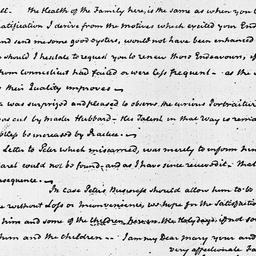 ll. — the Health of the Family here, is the same as when you l
atisfaction I derive from the motives which excited your End
nd send me some good oysters, would not have been enhanced
should I hesitate to request you to renew those Endeavours, if
from Connecticut had failed or were less frequent — as the
s their Quality improves —
was surprized and pleased to observe the curious Portraiture
as cut by master Hubbard — His Talent in that way is rema
btless be increased by Practice.
Letter to Peter which miscarried, was merely to inform him
arel could not be found, and as I have since recovered it that
sequence. —
In case Peter's Business should allow him to be
e without Loss or Inconvenience, we hope for the Satisfaction
him and some of the children before the Holydays; if not so
him and the children — I am my Dear mary your and
very affectionate Fa